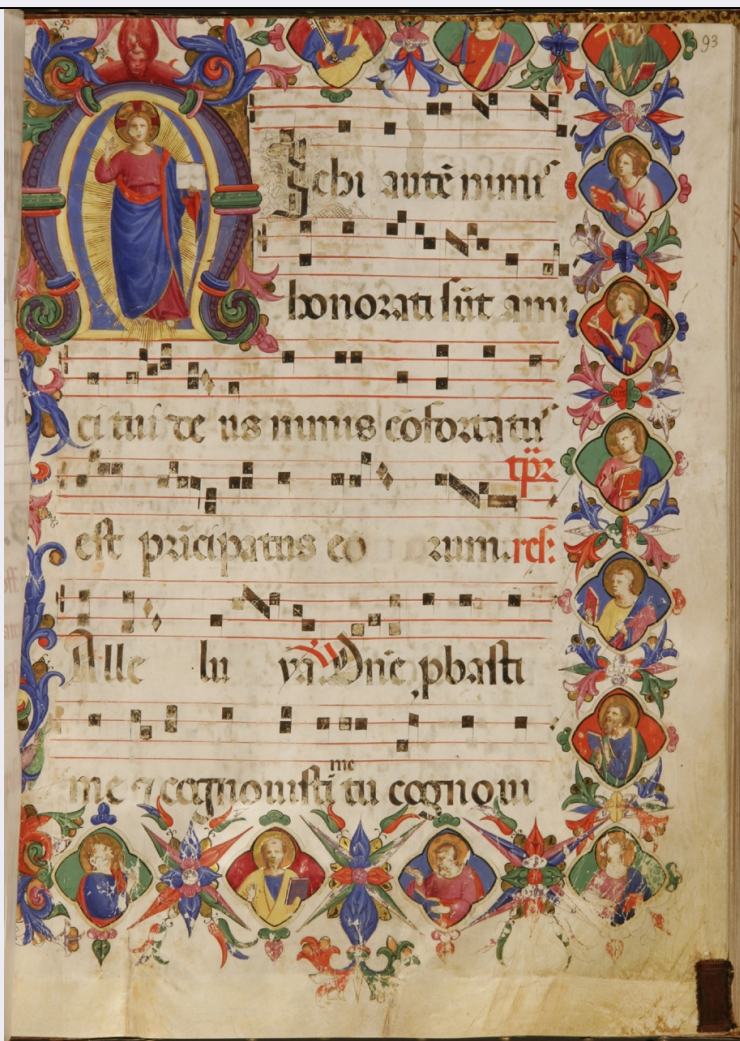 93
Michi autē nimiꝰ
honorati sūt ami
ci tui de us nimis cōfortatuꝰ
tp̄r
est prīcipatus eo rum. res:
Alle lu ya. Dn̄e pbasti
me
me ⁊ cognouisti tu cognoui